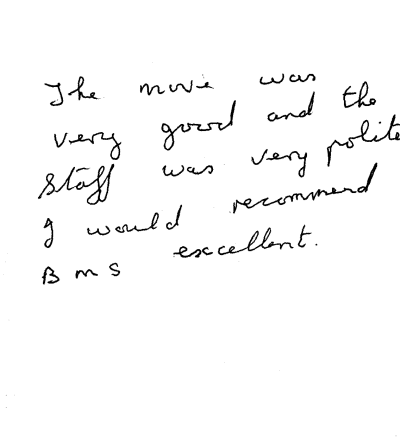 The move was
very good and the
staff was very polite
I would recommend
B M S excellent.